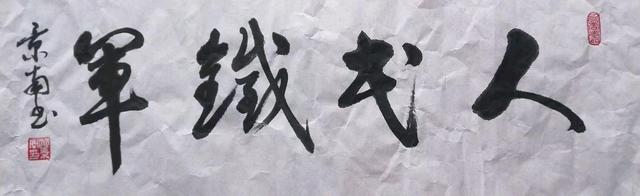 人民鐵軍
京南书